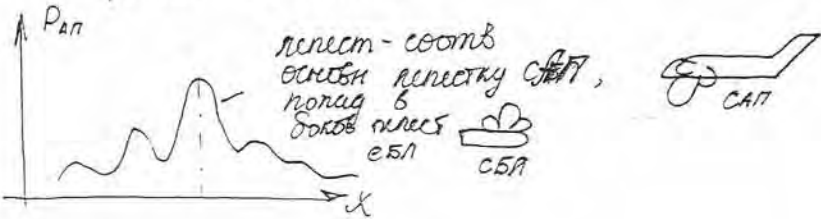 Рап
лепест - соотв
основн лепестку САП,
попад в
боков лепест
СБЛ
СБЛ
САП
X